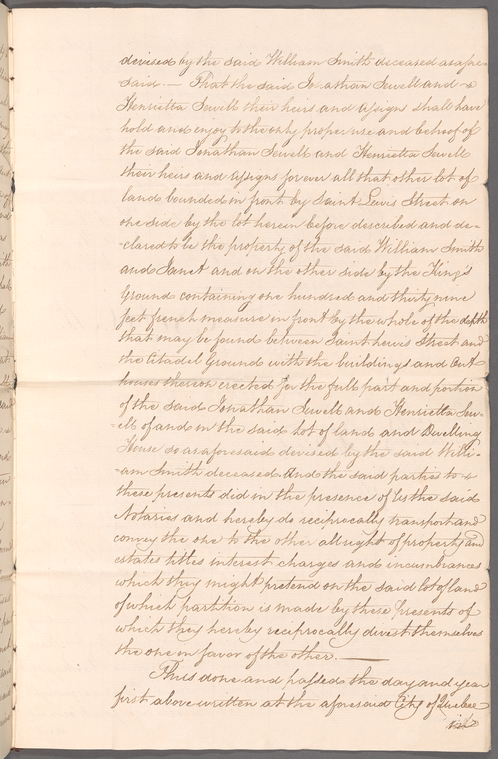 devised by the said William Smith deceased as afore
said. — That the said Jonathan Sewell and
Henrietta Sewell their heirs and assigns shall have
hold and enjoy to the only proper use and behoof of
the said Jonathan Sewell and Henrietta Sewell
their heirs and assigns forever all that other lot of
land bounded in front by Saint Lewis Street on
one side by the lot herein before described and de-
-clared to be the property of the said William Smith
and Janet and on the other side by the King's
Ground containing one hundred and thirty nine
feet french measure in front by the whole of the depth
that may be found between Saint Lewis Street and
the Citadel Ground with the buildings and out
houses thereon erected for the full part and portion
of the said Jonathan Sewell and Henrietta Sew-
-ell of and in the said lot of land and Dwelling
House so as aforesaid devised by the said Willi-
-am Smith deceased And the said parties to
these presents did in the presence of Us the said
Notaries and hereby do reciprocally transport and
convey the one to the other all right of property and
estates titles interest charges and incumbrances
which they might pretend on the said lot of land
of which partition is made by these presents of
which they hereby reciprocally divest themselves
the one in favor of the other. —
Thus done and passed the day and year
first above written at the aforesaid City of Quebec